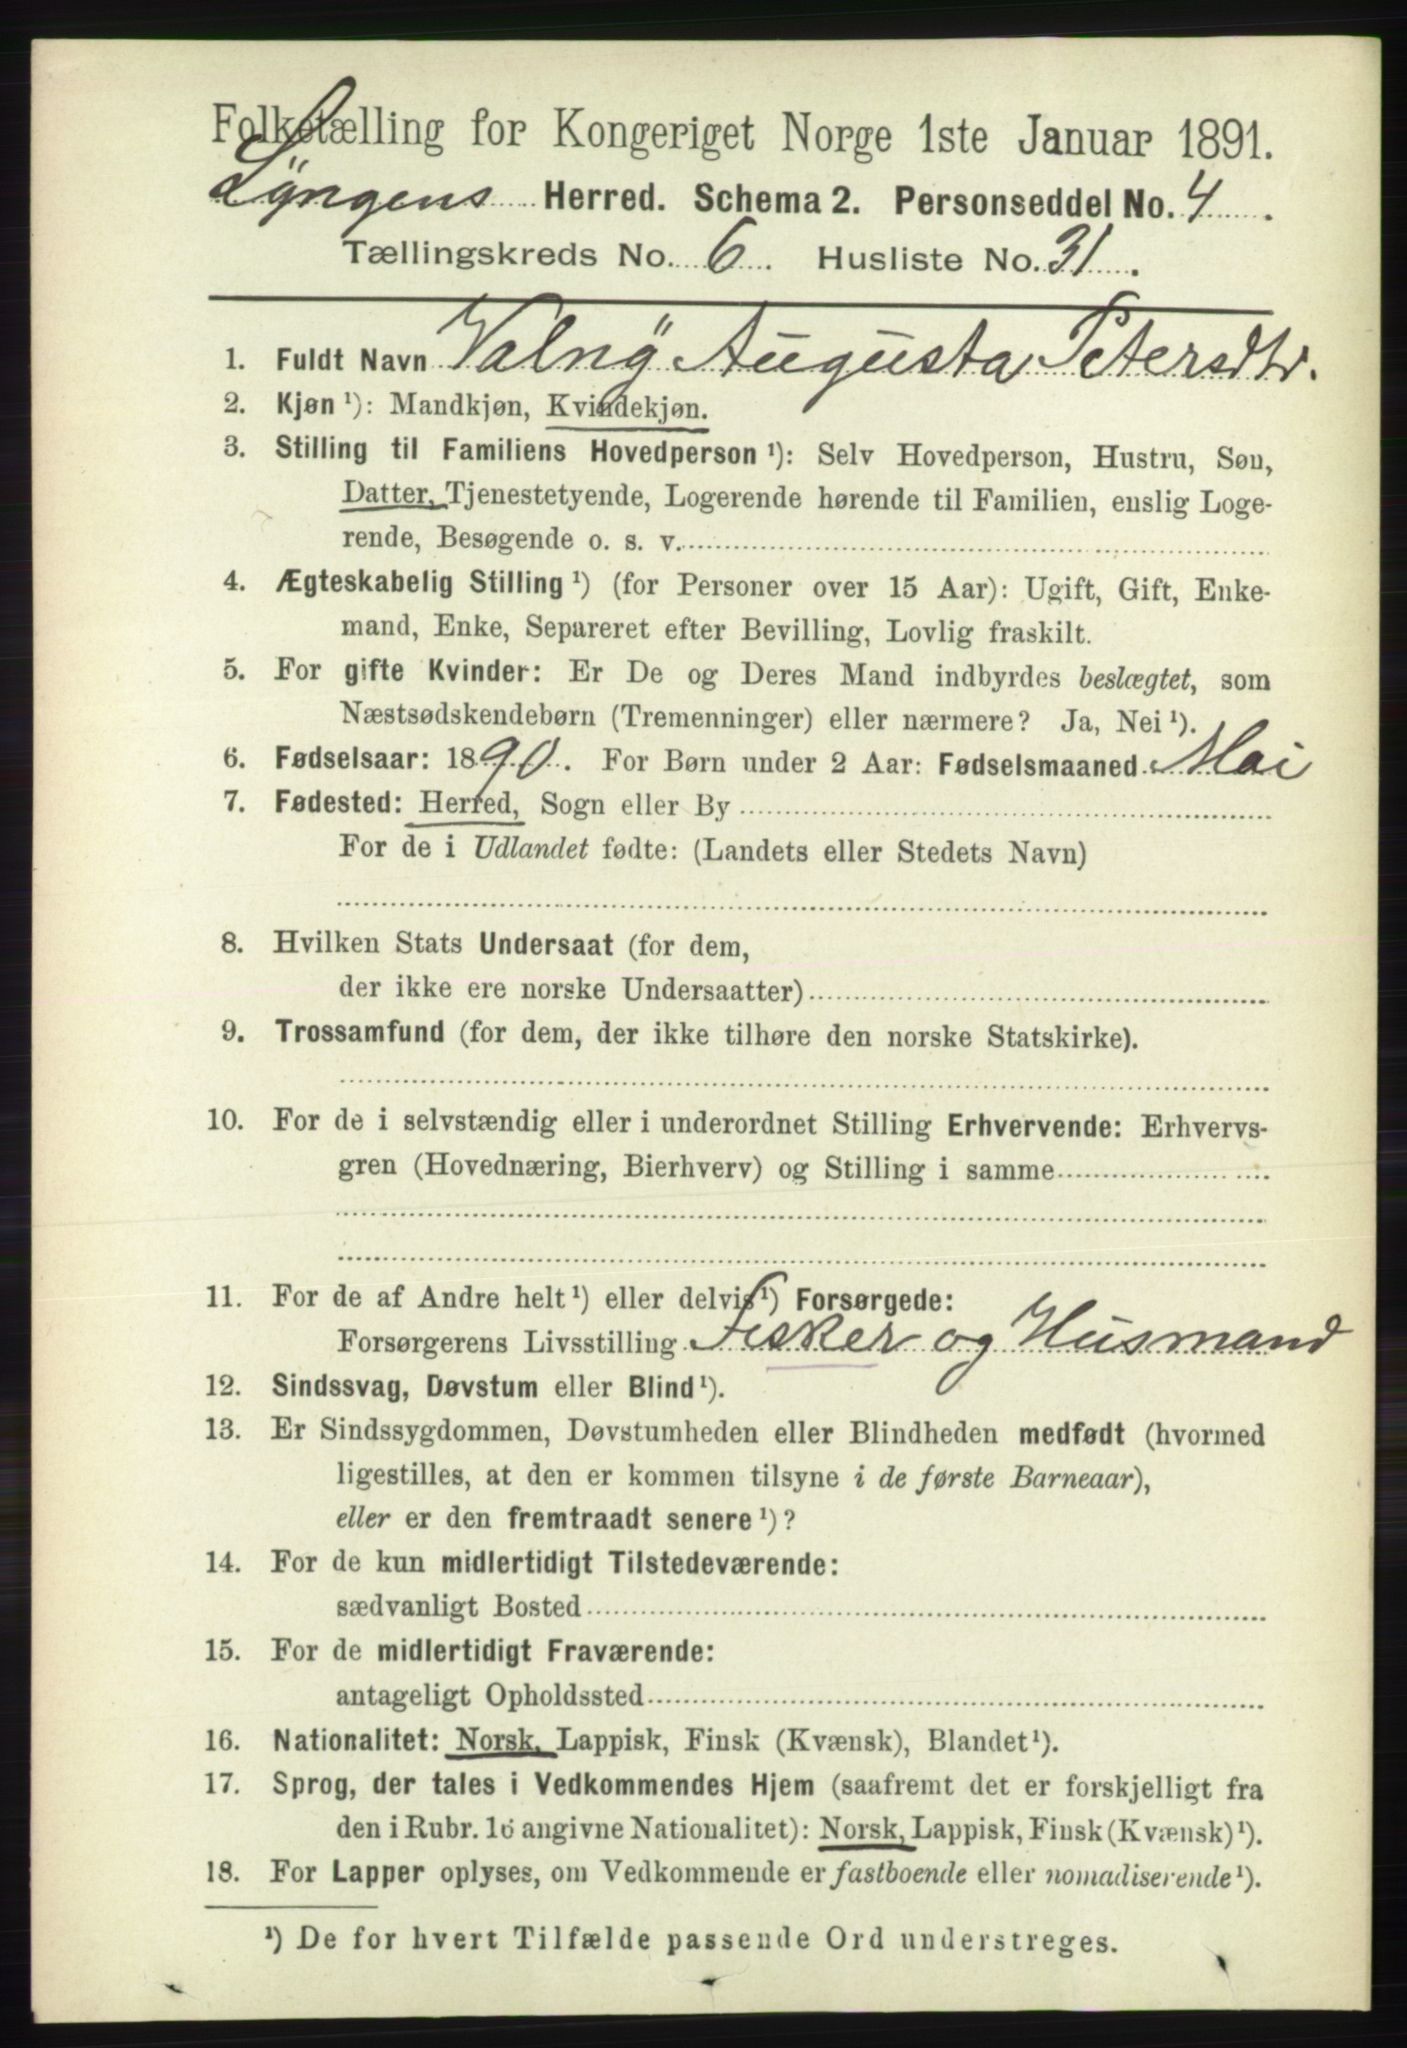 Folketælling for Kongeriget Norge 1ste Januar 1891.
Lyngens Herred. Schema 2. Personseddel No. 4.
Tællingskreds No. 6. Husliste No. 31.
1. Fuldt Navn Valnÿ Augusta Petersdtr.
2. Kjøn ¹): Mandkjøn, Kvindekjøn.
3. Stilling til Familiens Hovedperson ¹): Selv Hovedperson, Hustru, Søn,
Datter, Tjenestetyende, Logerende hørende til Familien, enslig Loge-
rende, Besøgende o. s. v.
4. Ægteskabelig Stilling ¹) (for Personer over 15 Aar): Ugift, Gift, Enke-
mand, Enke, Separeret efter Bevilling, Lovlig fraskilt.
5. For gifte Kvinder: Er De og Deres Mand indbyrdes beslægtet, som
Næstsødskendebørn (Tremenninger) eller nærmere? Ja, Nei ¹).
6. Fødselsaar: 1890. For Børn under 2 Aar: Fødselsmaaned Mai
7. Fødested: Herred, Sogn eller By
For de i Udlandet fødte: (Landets eller Stedets Navn)
8. Hvilken Stats Undersaat (for dem,
der ikke ere norske Undersaatter)
9. Trossamfund (for dem, der ikke tilhøre den norske Statskirke).
10. For de i selvstændig eller i underordnet Stilling Erhvervende: Erhvervs-
gren (Hovednæring, Bierhverv) og Stilling i samme
11. For de af Andre helt ¹) eller delvis ¹) Forsørgede:
Forsørgerens Livsstilling Fisker og Husmand
12. Sindssvag, Døvstum eller Blind ¹).
13. Er Sindssygdommen, Døvstumheden eller Blindheden medfødt (hvormed
ligestilles, at den er kommen tilsyne i de første Barneaar),
eller er den fremtraadt senere ¹)?
14. For de kun midlertidigt Tilstedeværende:
sædvanligt Bosted
15. For de midlertidigt Fraværende:
antageligt Opholdssted
16. Nationalitet: Norsk, Lappisk, Finsk (Kvænsk), Blandet ¹).
17. Sprog, der tales i Vedkommendes Hjem (saafremt det er forskjelligt fra
den i Rubr. 16 angivne Nationalitet): Norsk, Lappisk, Finsk (Kvænsk) ¹).
18. For Lapper oplyses, om Vedkommende er fastboende eller nomadiserende ¹).
¹) De for hvert Tilfælde passende Ord understreges.